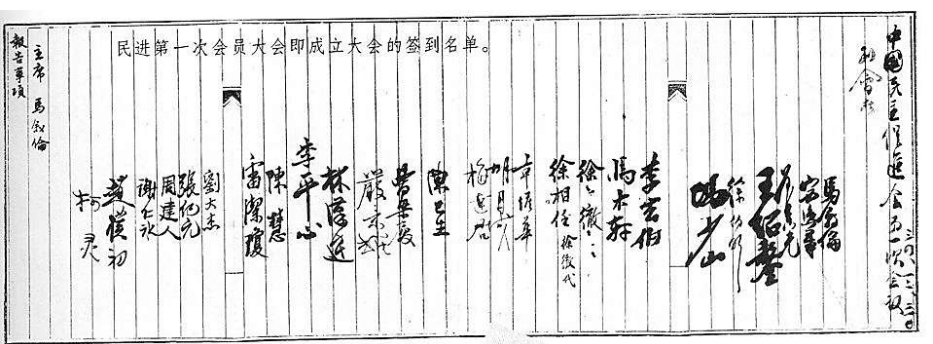 民进第一次会员大会即成立大会的签到名单。
中國民主促進會第一次會議 三四、十二、三〇
馬叙倫
宓逸羣
王紹鏊
徐伯昕
馮少山
李玄伯
徐徹
徐相任 徐徹代
章蟾華
梅達君
陳巳生
曹梁厦
嚴景耀
林漢達
李平心
陳慧
雷潔瓊
劉大杰
張紀元
周建人
謝仁冰
趙樸初
柯灵
主席 馬叙倫
報告事項